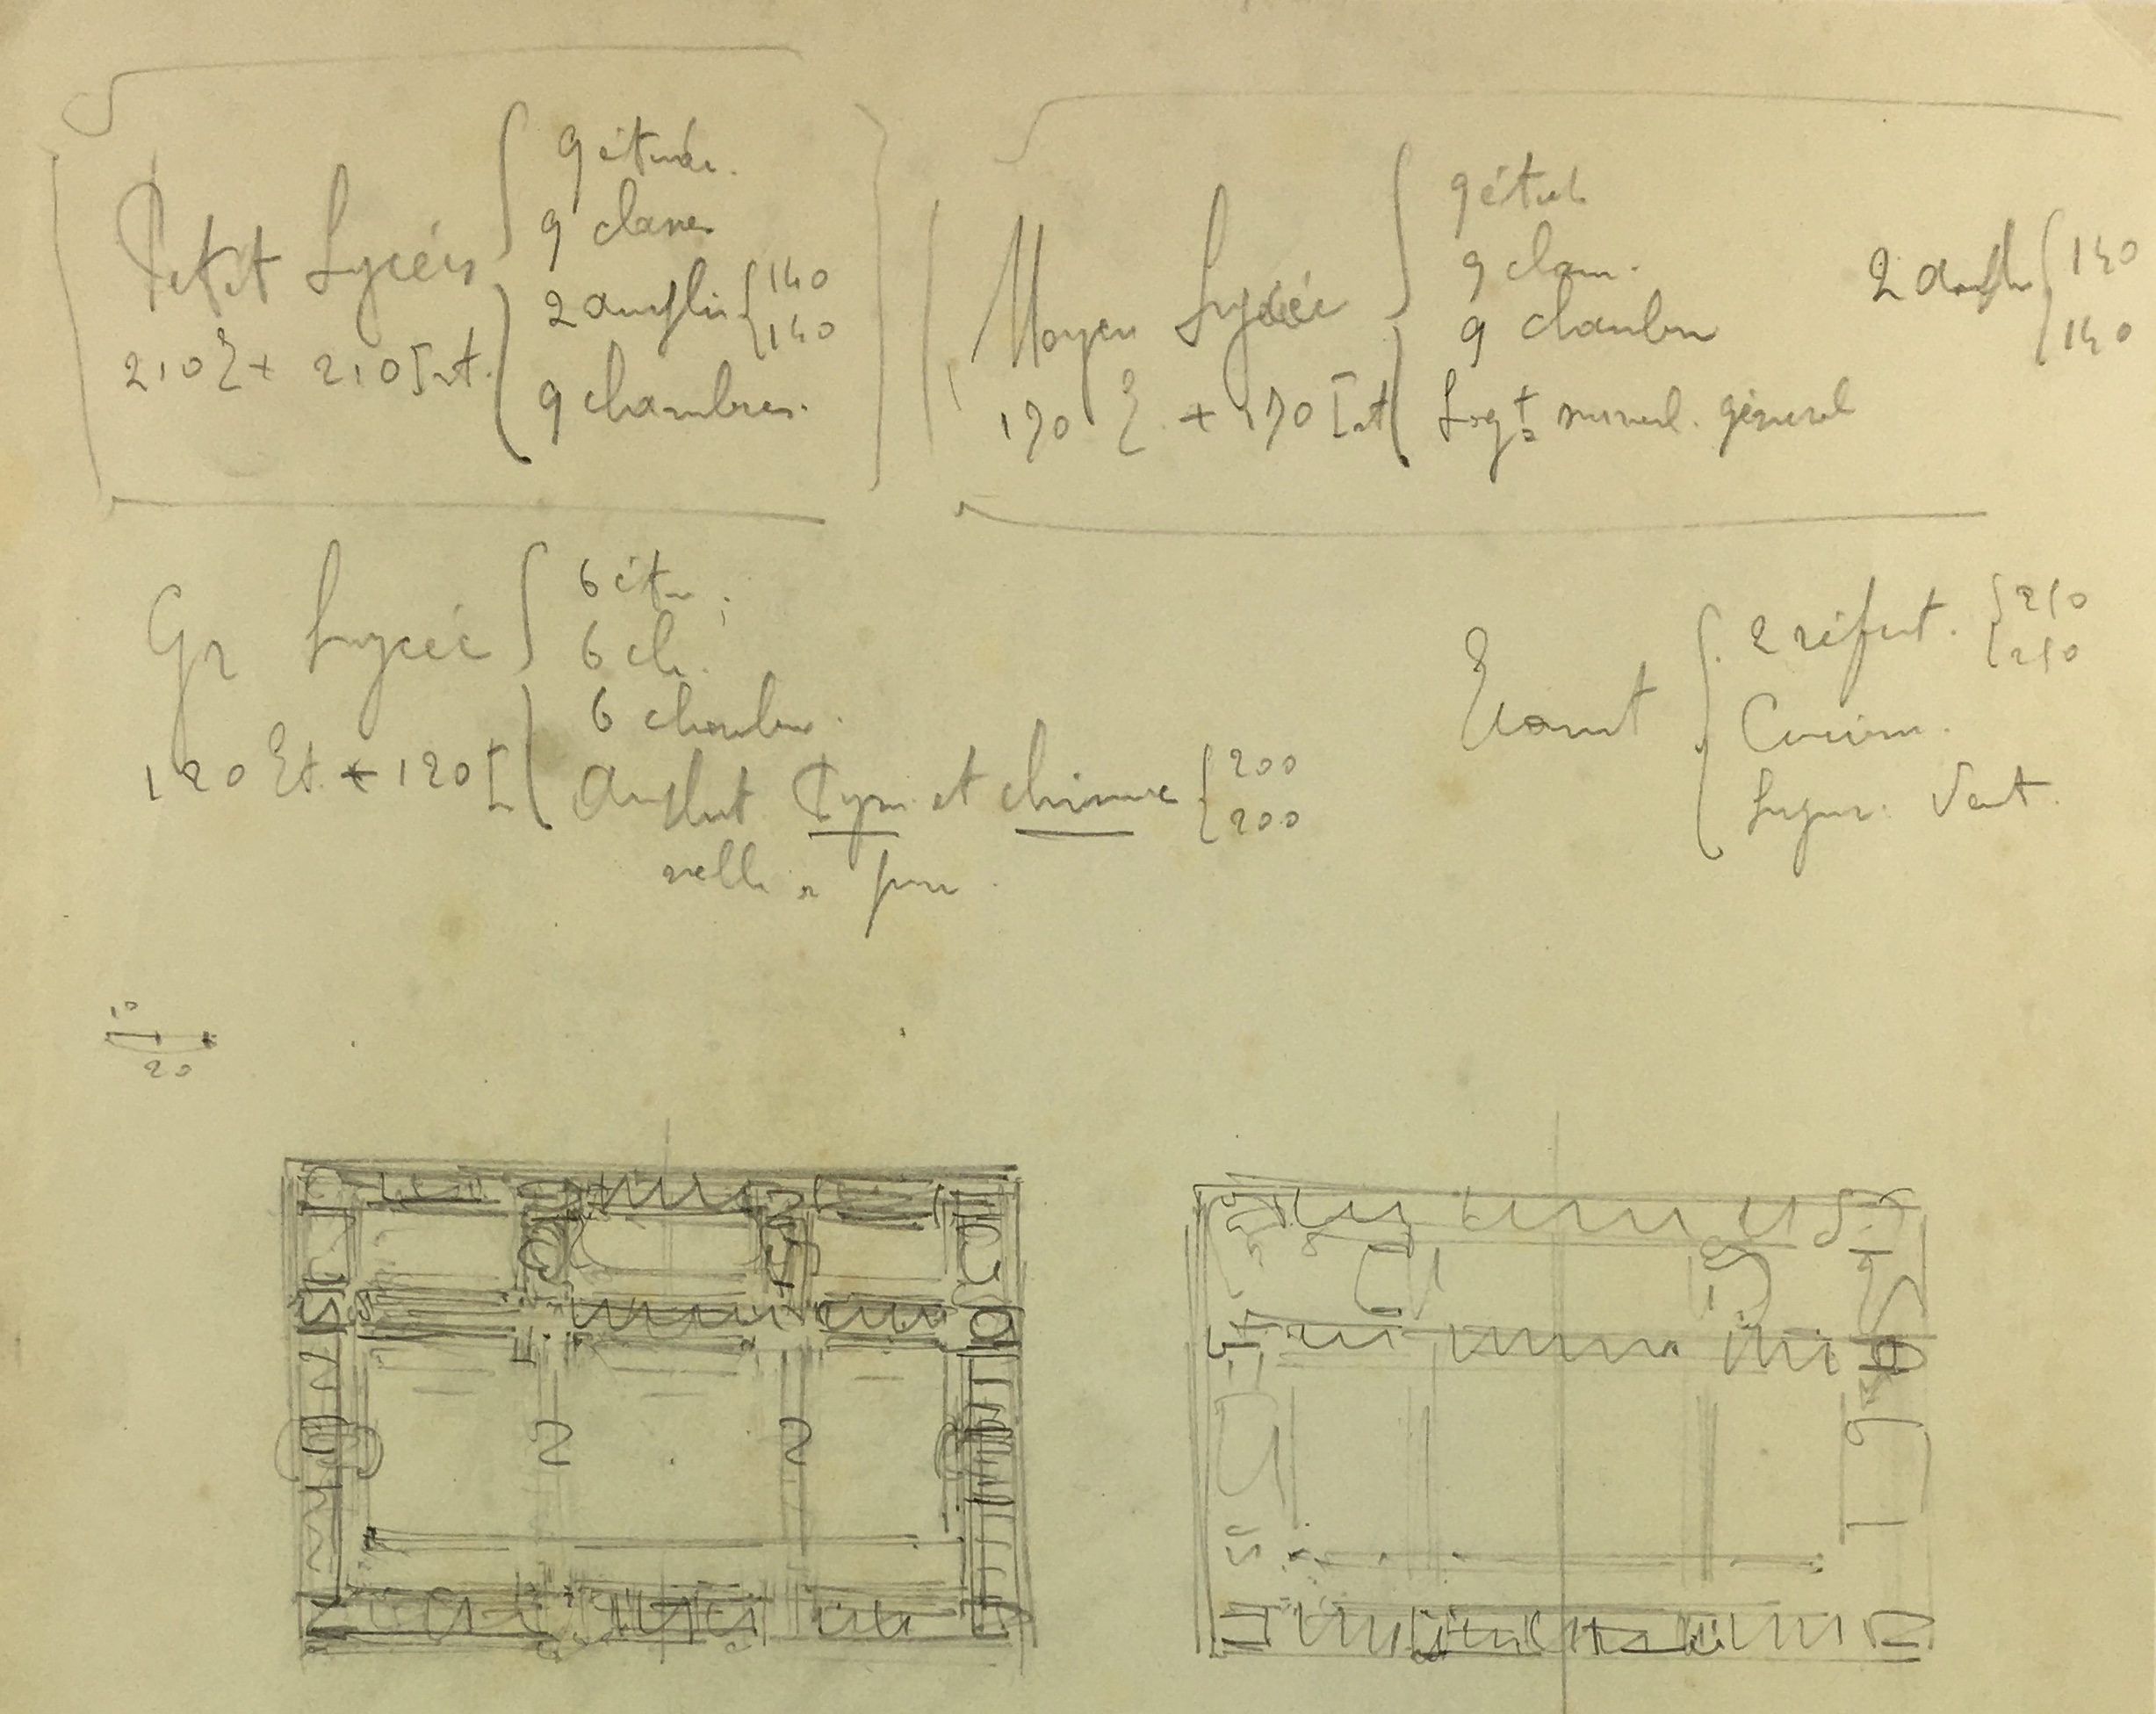 Petit Lycée
210 E + 210 Int.
9 étude.
9 classes
2 amphi { 140
140
9 chambres.
Moyen Lycée
170 E + 170 Int
9 étud.
9 class.
9 chambre
Logt surveil. général
2 amph { 140
140
Gr Lycée
120 Et. + 120 I
6 étu.
6 cl.
6 chambre.
Amphit et chimie { 200
200
2 réfect. { 210
210
Cuisine.
10
20
2 2